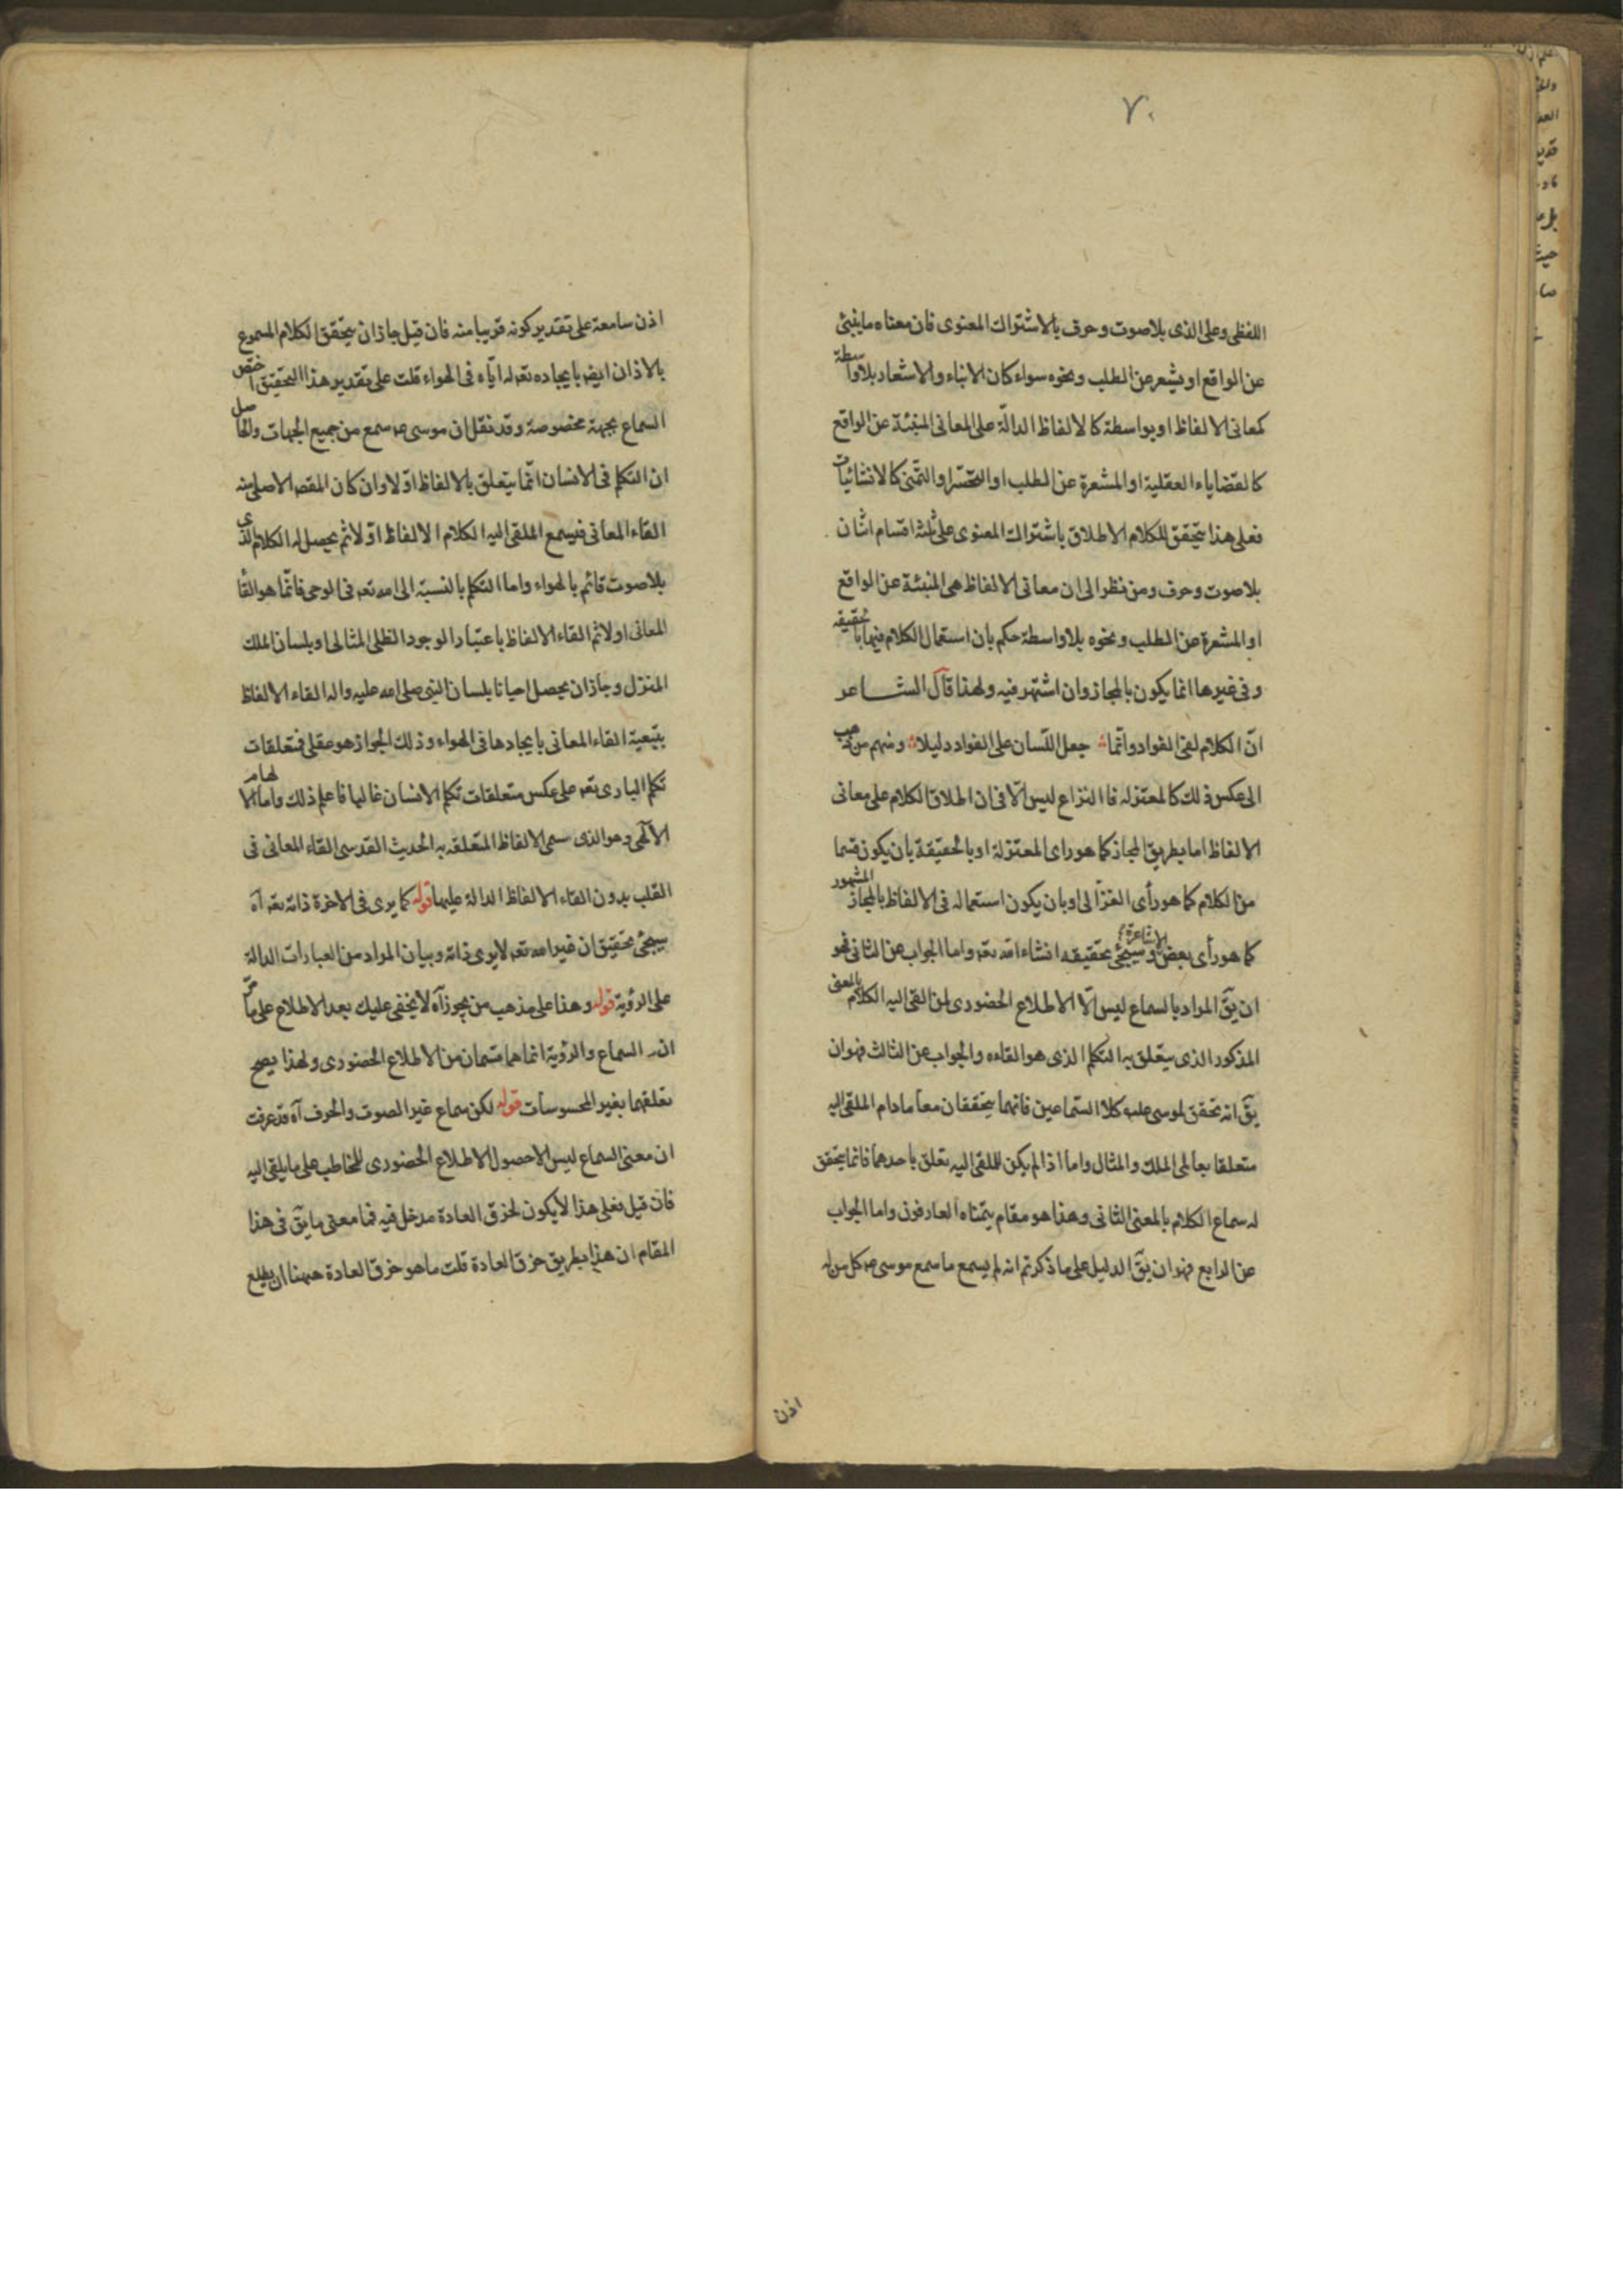 ٧٠
اللفظى وعلى الذى بلا صوت وحرف بالاشتراك المعنوى فان معناه ما ينبئ
عن الواقع او يشعر عن الطلب ونحوه سواء كان الانباء والاشعار بلا واسطة
كمعانى الالفاظ او بواسطة كالالفاظ الدالّة على المعانى المنبئة عن الواقع
كالقضاياء العقلية او المشعرة عن الطلب او التحسّر او التمّنى كالانشائيات
فعلى هذا يتحقق للكلام الاطلاق باشتراك المعنوى على ثلثة اقسام اثنان
بلا صوت وحرف ومن نظر الى ان معانى الالفاظ هى المنبئة عن الواقع
او المشعرة عن الطلب ونحوه بلا واسطة حكم بان استعمال الكلام فيها با لحقيقة
وفى غيرها انما يكون بالمجاز وان اشتهر فيه ولهذا قال الشاعر
انّ الكلام لفى الفواد وانّما جعل اللّسان على الفواد دليلا ومنهم من ذهب
الى عكس ذلك كالمعتزله فا النزاع ليس الّا فى ان اطلاق الكلام على معانى
الالفاظ اما بطريق المجاز كما هو راى المعتزلة او بالحقيقة بأن يكون قسما
من الكلام كما هو رأى الغزّالى او بان يكون استعماله فى الالفاظ بالمجاز المشهور
كما هو رأى بعض الاشاعرة وسيجئ تحقيقه انشاء الله تعه واما الجواب عن الثانى فهو
ان يقّ المراد بالسماع ليس الّا الاطلاع الحضورى لمن القى اليه الكلام بالمعنى
المذكور الذى يتعلق به التكلم الذى هو القاءه والجواب عن الثالث فهو ان
يقّ انه تحقق لموسى عليه كلا السّماعين فانهما يتحققان معاً مادام الملقى اليه
متعلقا بعالمى الملك والمثال واما اذا لم يكن للملقى اليه تعلق باحدهما فانما يتحقق
له سماع الكلام بالمعنى الثانى وهذا هو مقام يتمّناه العارفون واما الجواب
عن الرابع فهو ان يقّ الدليل على ما ذكرتم انه لم يسمع ما سمع موسى عه كل من له
اذن
اذن سامعة على تقدير كونه قريبا منه فان قيل جاز ان يتحقق الكلام المسموع
بالاذان ايضه بايجاده تعه له ايّاه فى الهواء قلت على تقدير هذا التحقيق اختصّ
السماع بجهة مخصوصة وقد نقل ان موسى عه سمع من جميع الجهات والحاصل
ان التكلم فى الانسان انّما يتعلق بالالفاظ اوّلا وان كان المقصه الاصلى منه
القاء المعانى فيسمع الملقى اليه الكلام الالفاظ اوّلا ثم يحصل له الكلام الذى
بلا صوت قائم بالهواء واما التكلم بالنسبة الى الله تعه فى الوحى فانّما هو القاء
المعانى اولا ثم القاء الالفاظ باعتبار الوجود الظلى المثالى او بلسان الملك
المنزل وجاز ان يحصل احيانا بلسان النبى صلى الله عليه واله القاء الالفاظ
بتبعية القاء المعانى بايجادها فى الهواء وذلك الجواز هو عقلى فمتعلقات
تكلم البارى تعه على عكس متعلقات تكلم الانسان غالبا فاعلم ذلك واما الالهام
الآلهى وهو الذى سمى الالفاظ المتعلقه به الحديث القدسى القاء المعانى فى
القلب بدون القاء الالفاظ الدالة عليها قوله كما يرى فى الاخرة ذاته تعه آه
سيجئ تحقيق ان غير الله تعه لا يرى ذاته وبيان المراد من العبارات الدالة
على الرؤية قوله وهذا على مذهب من يجوز آه لا يخفى عليك بعد الاطلاع على ما مرّ
ان السماع والرؤية انما هما قسمان من الاطلاع الحضورى ولهذا يصح
تعلقهما بغير المحسوسات قوله لكن سماع غير الصوت والحرف آه قد عرفت
ان معنى السماع ليس الا حصول الاطلاع الحضورى للمخاطب على ما يلقى اليه
فان قيل فعلى هذا لا يكون لخرق العادة مدخل فيه فما معنى ما يقّ فى هذا
المقام ان هذا بطريق خرق العادة قلت ما هو خرق العادة ههنا ان يطلع